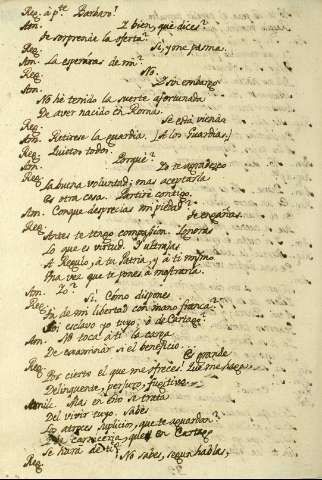 Reg. á p.te Barbaro!
Am. Y bien, que dices?
te sorprende la oferta?
Reg. Si, y me pasma.
Am. La esperabas de mi?
Reg. No.
Am. Y sin embargo
No hé tenido la suerte afortunada
De aver nacido en Roma.
Reg. Se está viendo
Am. Retirese la guardia. [A los Guardias.]
Reg. Quietos todos.
Am. Porqué?
Reg. Yo te agradezco
La buena voluntad; mas aceptarla
Es otra cosa. Partiré contigo.
Am. Conque desprecias mi piedad?
Reg. te engañas.
Antes te tengo compasion. Ignoras
Lo que es virtud. Y ultrajas
A Regulo, á tu Patria, y á ti mismo
Una vez que te pones á mostrarla.
Am. Yo?
Reg. Si. Cómo dispones
De mi libertad con mano franca?
Soi esclavo yo tuyo, ó de Cartago?
Am. No toca á ti la carga
De examinar si el beneficio...
Reg. Es grande
Por cierto el que me ofreces! Que me haga
Delinquente, perjuro, fugitivo
Amil. Mas en esto se trata
Del vivir tuyo. Sabes
Los atroces suplicios, que te aguardan?
carniceria, que en Cartago
Se hara de ti?
Reg. No sabes, segun hablas,